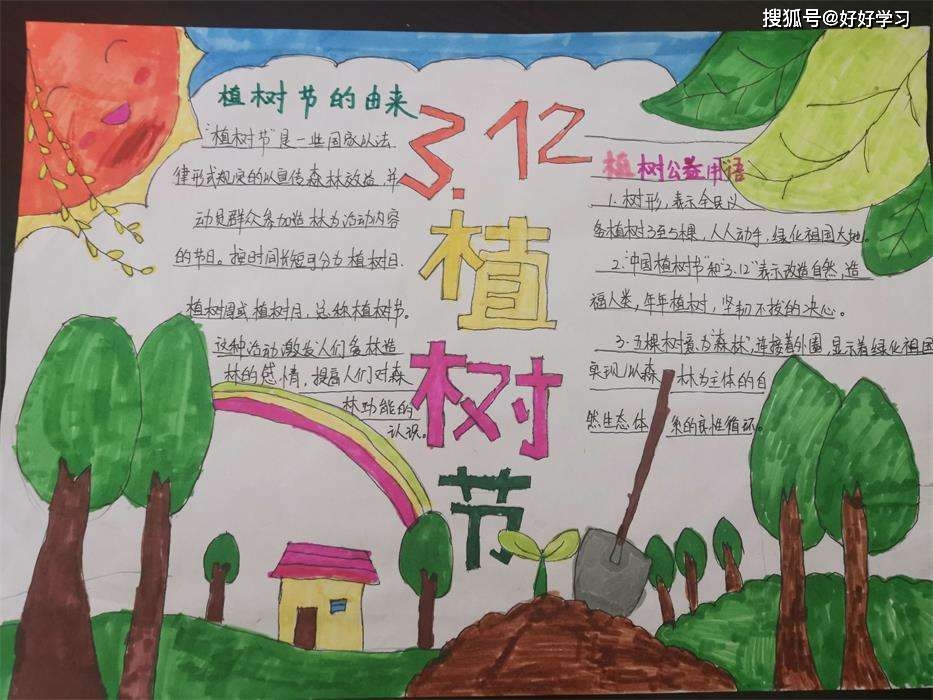 搜狐号@好好学习
植树节的由来
"植树节"是一些国家以法
律形式规定的以宣传森林效益,并
动员群众参加造林为活动内容
的节日。按时间长短可分为植树日.
植树周或植树月,总称植树节。
这种活动激发人们爱林造
林的感情,提高人们对森
林功能的
认识。
3.12
植
树
节
植树公益用语
1.树形,表示全民义
务植树3至5棵,人人动手,绿化祖国大地。
2."中国植树节"和"3.12"表示改造自然,造
福人类,年年植树,坚韧不拔的决心。
3.五棵树意为"森林",连接着外圈,显示着绿化祖国
实现以森 林为主体的自
然生态体 系的良性循环。